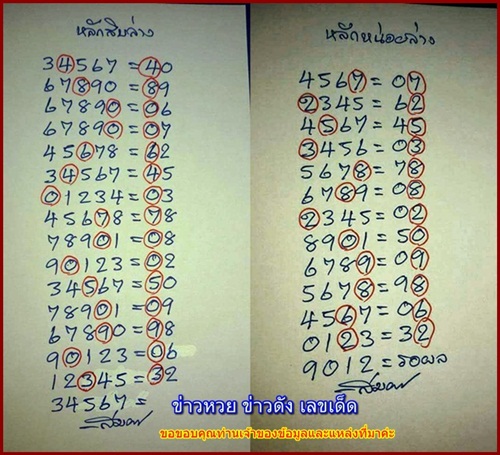 หลักสิบล่าง
34567 = 40
67890 = 89
67890 = 06
67890 = 07
45678 = 62
34567 = 45
01234 = 03
45678 = 78
78901 = 08
90123 = 02
34567 = 50
78901 = 09
67890 = 98
90123 = 06
12345 = 32
34567 =
หลักหน่วยล่าง
4567 = 07
2345 = 62
4567 = 45
3456 = 03
5678 = 78
6789 = 08
2345 = 02
8901 = 50
6789 = 09
5678 = 98
4567 = 06
0123 = 32
9012 = รอผล
ข่าวหวย ข่าวดัง เลขเด็ด
ขอขอบคุณท่านเจ้าของข้อมูลและแหล่งที่มาค่ะ